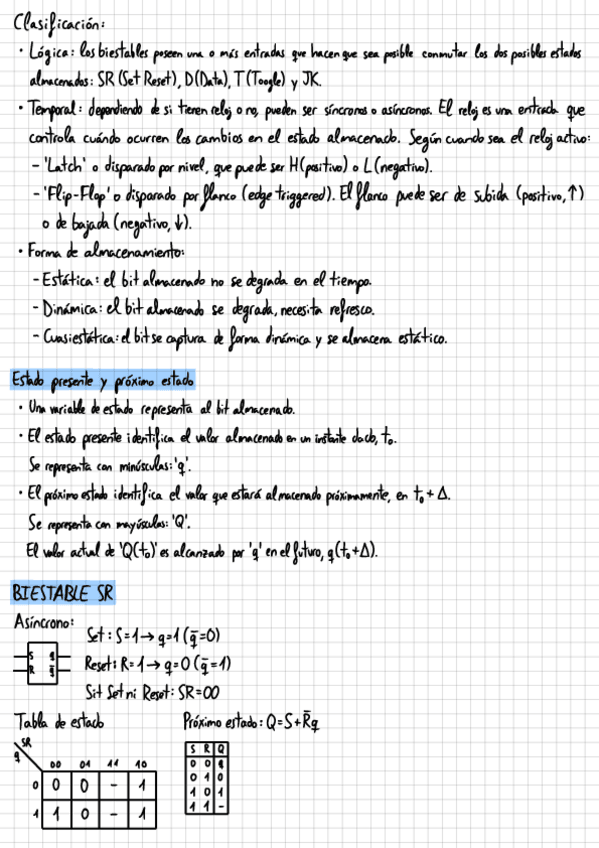 Clasificación:
· Lógica: los biestables poseen una o más entradas que hacen que sea posible conmutar los dos posibles estados
almacenados: SR (Set Reset), D(Data), T(Toogle) y JK.
· Temporal: dependiendo de si tienen reloj o no, pueden ser síncronos o asíncronos. El reloj es una entrada que
controla cuándo ocurren los cambios en el estado almacenado. Según cuando sea el reloj activo:
- 'Latch' o disparado por nivel, que puede ser H(positivo) o L(negativo).
- 'Flip-Flop' o disparado por flanco (edge triggered). El flanco puede ser de subida (positivo,↑)
o de bajada (negativo,↓).
· Forma de almacenamiento:
- Estática: el bit almacenado no se degrada en el tiempo.
- Dinámica: el bit almacenado se degrada, necesita refresco.
- Cuasiestática: el bit se captura de forma dinámica y se almacena estático.
Estado presente y próximo estado
· Una variable de estado representa al bit almacenado.
· El estado presente identifica el valor almacenado en un instante dado, t₀.
Se representa con minúsculas: 'q'.
· El próximo estado identifica el valor que estará almacenado próximamente, en t₀ + Δ.
Se representa con mayúsculas: 'Q'.
El valor actual de 'Q(t₀)' es alcanzado por 'q' en el futuro, q(t₀+Δ).
BIESTABLE SR
Asíncrono:
Set: S=1→q=1(q̅=0)
S q
Reset: R=1→q=0(q̅=1)
R q̅
Sit Set ni Reset: SR=00
Tabla de estado
Próximo estado: Q=S+R̅q
SR
q
00 01 11 10
0 0 0 - 1
1 1 0 - 1
S R Q
0 0 q
0 1 0
1 0 1
1 1 -